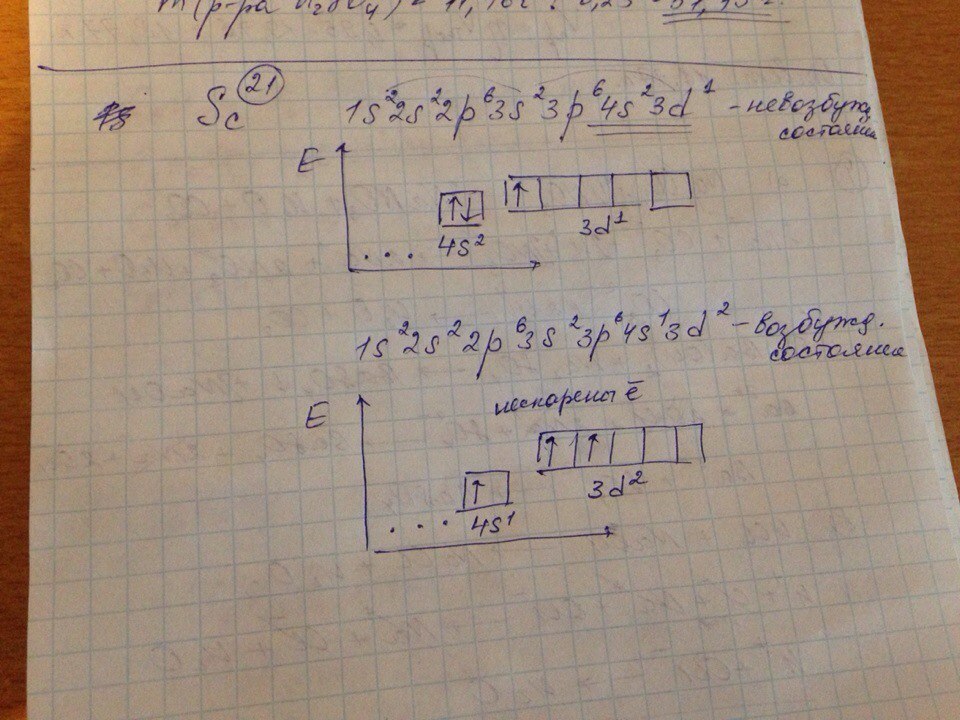 m(р-ра
Sc 21 1s²2s²2p⁶3s²3p⁶4s²3d¹ - невозбужд.
состояние
E
↑↓ ↑
4s² 3d¹
. . .
1s²2s²2p⁶3s²3p⁶4s¹3d² - возбужд.
состояние
E
неспарены ē
↑ ↑ ↑
3d²
. . . 4s¹